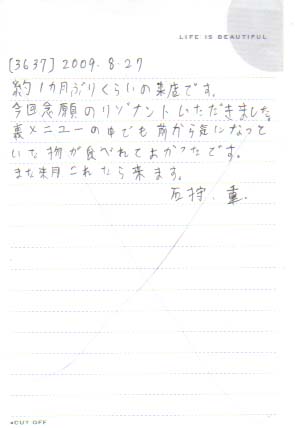 LIFE IS BEAUTIFUL
[3637] 2009.8.27
約1カ月ぶりくらいの来店です。
今回念願のリゾナントいただきました。
裏メニューの中でも前から気になって
いた物が食べれてよかったです。
また来月これたら来ます。
石狩、重
•CUT OFF